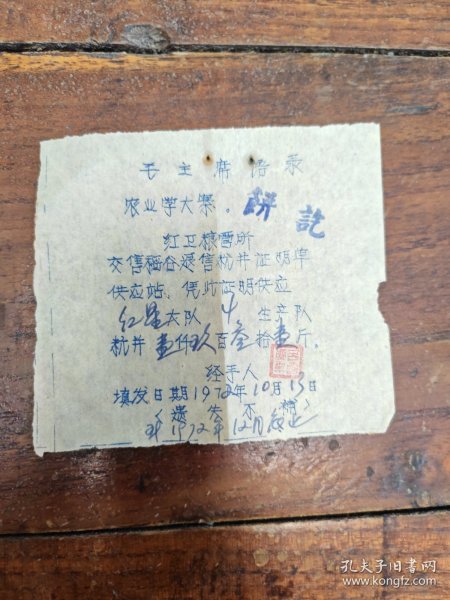 毛主席语录
农业学大寨。讫
红卫粮管所
交售稻谷返售杭并证明单
供应站,凭此证明供应
红星大队 4 生产队
杭并壹仟玖百叁拾壹斤。
经手人
填发日期1972年10月13日
(遗失不补)
1972年12月
孔夫子旧书网
www.kongfz.com